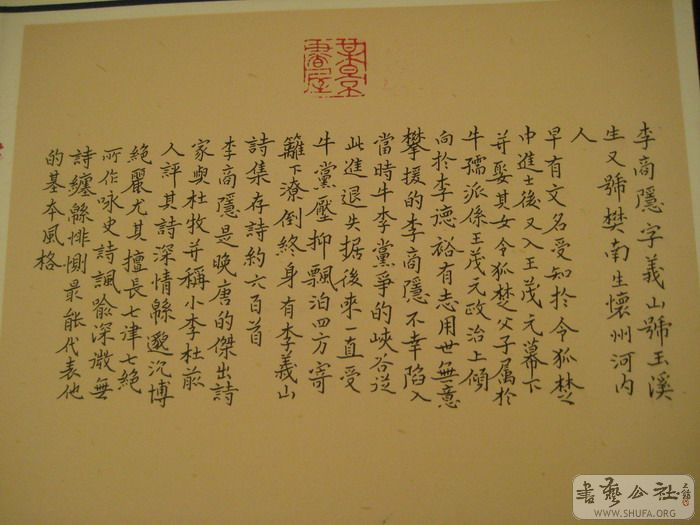 李商隱字義山號玉溪
生又號樊南生懷州河內
人
早有文名受知於令狐楚
中進士後又入王茂元幕下
并娶其女令狐楚父子属於
牛孺派係王茂元政治上傾
向於李德裕有志用世無意
攀援的李商隱不幸陷入
當時牛李黨爭的峽谷從
此進退失据後來一直受
牛黨壓抑飄泊四方寄
籬下潦倒終身有李義山
詩集存詩約六百首
李商隱是晚唐的傑出詩
家與杜牧并稱小李杜前
人評其詩深情緜邈沉博
絕麗尤其擅長七律七絕
所作咏史詩諷喻深微無
詩纏緜悱惻最能代表他
的基本風格
書藝公社
WWW.SHUFA.ORG